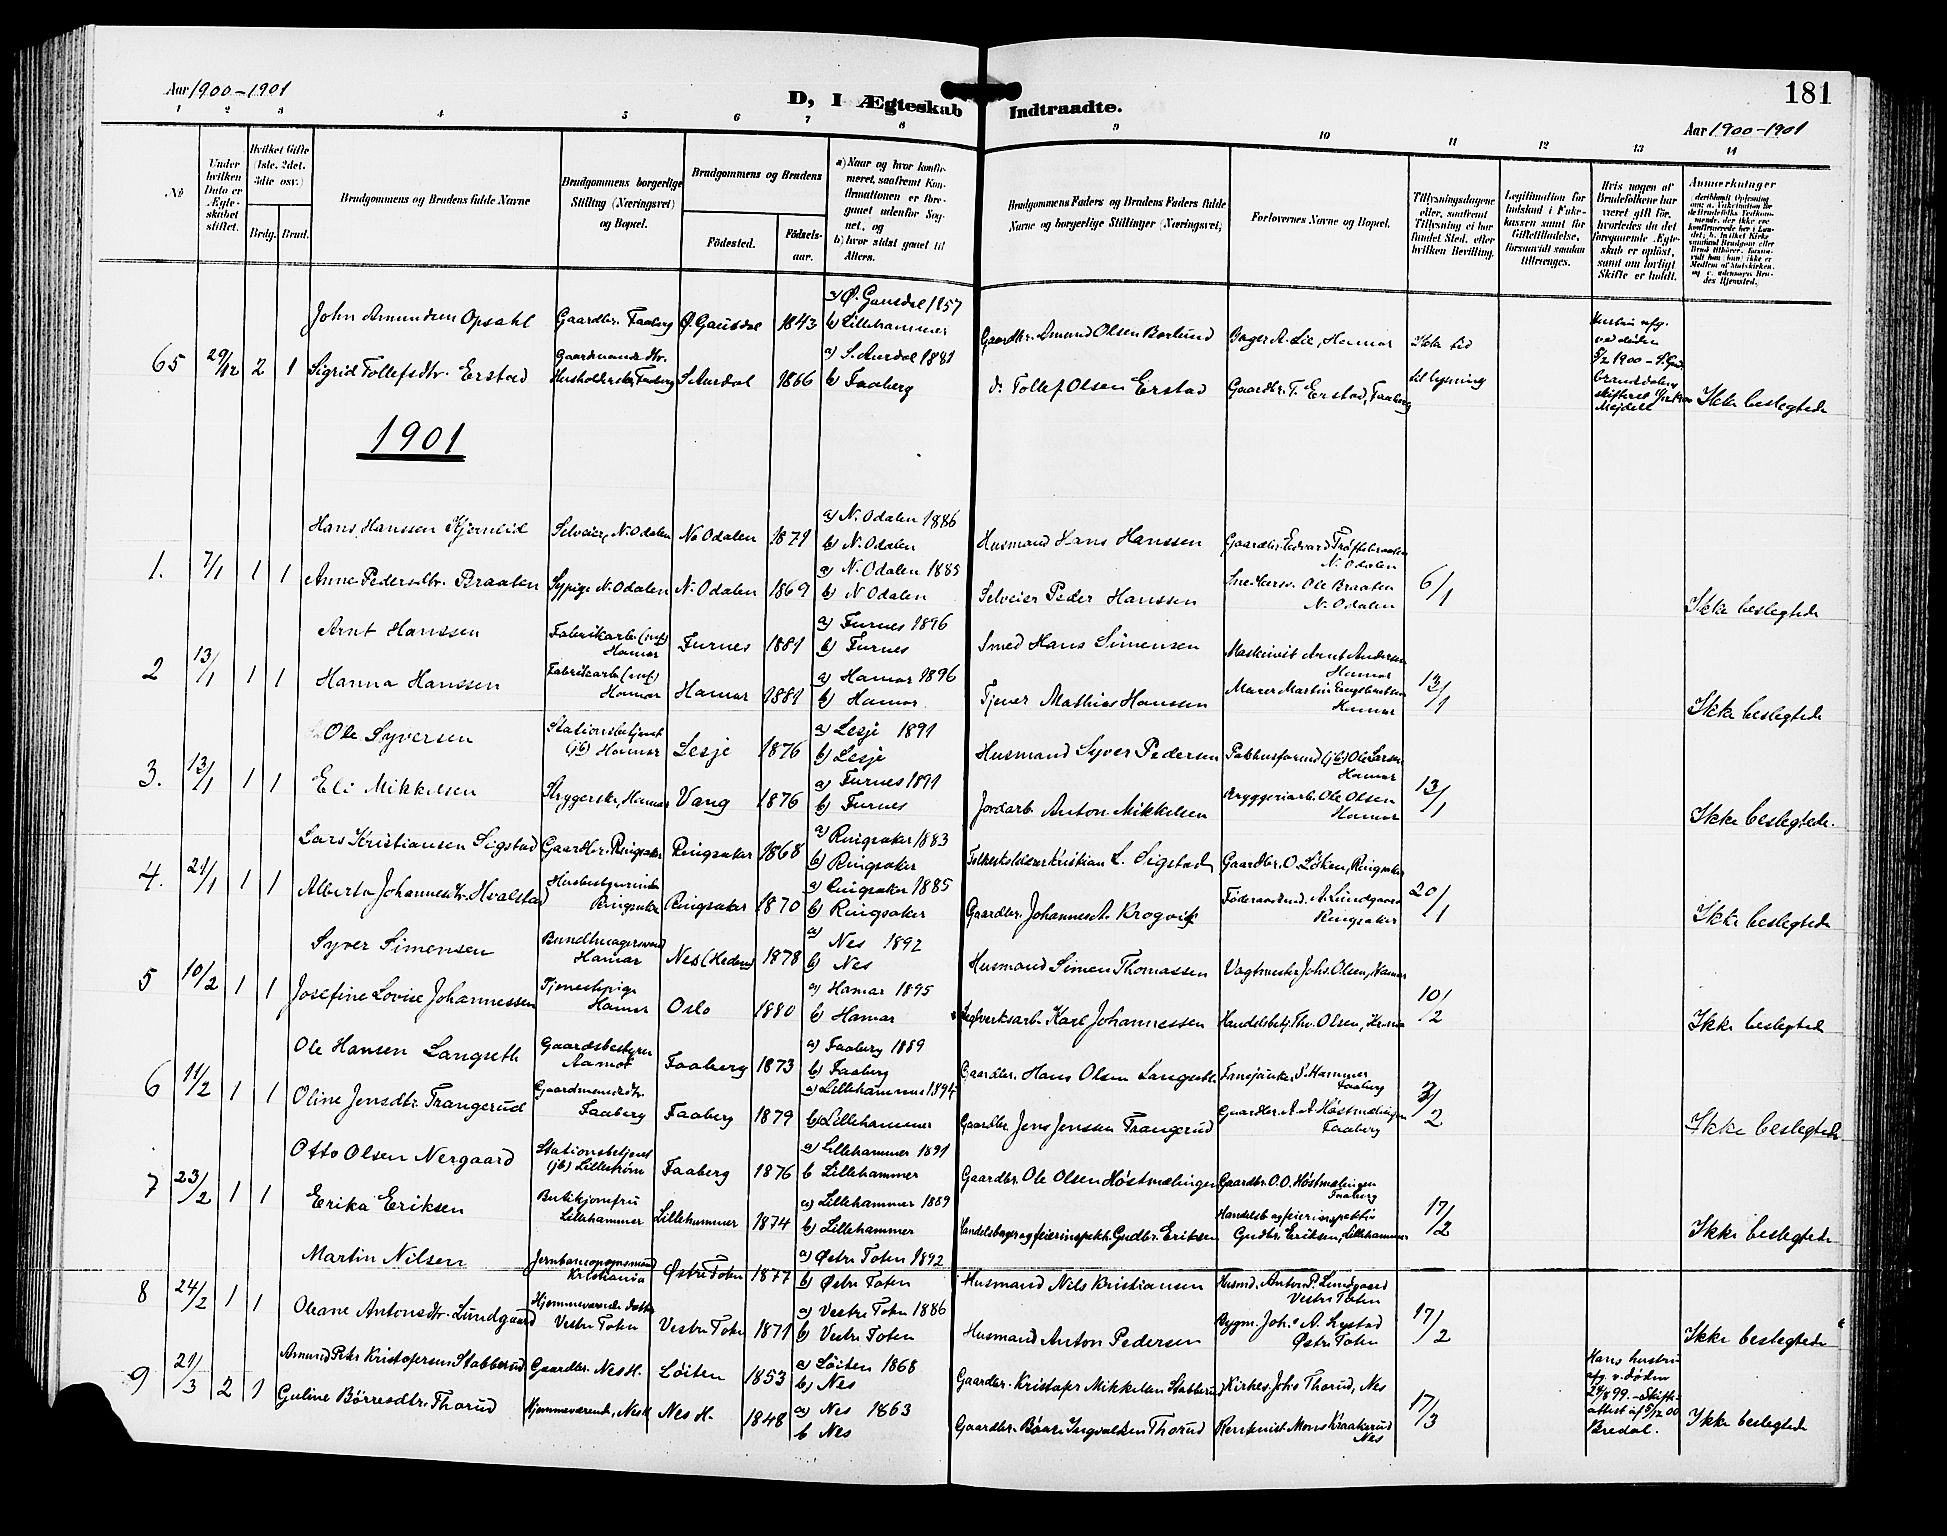 Aar 1900-1901
D, 1 Ægteskab Indtraadte.
181
Aar 1900-1901
1 2 3 4 5 6 7 8 9 10 11 12 13 14
No
Under hvilken Dato er Ægteskabet stiftet.
Hvilket Gifte (1ste, 2det, 3die osv.)
Brdg. Brud.
Brudgommens og Brudens fulde Navne
Brudgommens borgerlige Stilling (Næringsvei) og Bopæl.
Brudgommens og Brudens
Fødested. Fødselsaar.
a) Naar og hvor konfirmeret, saafremt Konfirmationen er foregaaet udenfor Sognet, og
b) hvor sidst gaaet til Alters.
Brudgommens Faders og Brudens Faders fulde Navne og borgerlige Stillinger (Næringsvei)
Forlovernes Navne og Bopæl.
Tillysningsdagene eller, saafremt Tillysning ei har fundet Sted, efter hvilken Bevilling.
Legitimation for Indskud i Enkekassen samt for Giftetilladelse, forsaavidt saadan tiltrænges.
Hvis nogen af Brudefolkene har været gift før, hvorledes da det foregaaende Ægteskab er opløst, samt om lovligt Skifte er holdt.
Anmærkninger
65 29/12 2 1
John Amundsen Opsahl Gaardbr. Faaberg Ø. Gausdal 1843 a) Ø. Gausdal 1857 b) Lillehammer Gaardbr. Amund Olsen Børlund Bager A. Lie, Hamar Ikke tid
Sigrid Tollefsdtr. Erstad Gaardmandsdtr. Faaberg S. Aurdal 1866 a) S. Aurdal 1881 b) Faaberg do Tollef Olsen Erstad Gaardbr. T. Erstad, Faaberg til lysning
Hustru afg. ved døden 5/2 1900 - S. Gudbrandsdalens skifteret Mejdell
Ikke beslegtede
1901
1. 7/1 1 1
Hans Hanssen Kjernlid Selveier, N. Odalen N. Odalen 1871 a) N. Odalen 1886 b) N. Odalen Husmand Hans Hanssen Gaardbr. Edvard Trøftebraaten N. Odalen
Anne Pedersdtr. Braaten Sypige N. Odalen N. Odalen 1869 a) N. Odalen 1885 b) N. Odalen Selveier Peder Hanssen Ole Braaten N. Odalen 6/1
Ikke beslegtede
2 13/1 1 1
Arnt Hanssen Fabrikarb. Hamar Furnes 1881 a) Furnes 1896 b) Furnes Smed Hans Simensen Maskinist Arnt Andersen Hamar
Hanna Hanssen Fabrikarb. Hamar Hamar 1881 a) Hamar 1896 b) Hamar Tjener Mathias Hanssen Murer Martin Hamar 13/1
Ikke beslegtede
3. 13/1 1 1
Ole Syversen Stationsbetjent (jb) Hamar Lesje 1876 a) Lesje 1891 b) Lesje Husmand Syver Pedersen Pakhusformd (jb) Ole Larsen Hamar
Eli Mikkelsen Strygerske, Hamar Vang 1876 a) Furnes 1891 b) Furnes Jordarb. Anton Mikkelsen Bryggeriarb. Ole Olsen Hamar 13/1
Ikke beslegtede.
4. 21/1 1 1
Lars Kristiansen Sigstad Gaardbr. Ringsaker Ringsaker 1868 a) Ringsaker 1883 b) Ringsaker Kristian L. Sigstad Gaardbr. O. Løken, Ringsaker
Alberta Johannesdtr. Hvalstad Husbestyrerinde Ringsaker Ringsaker 1870 a) Ringsaker 1885 b) Ringsaker Gaardbr. Johannes A. Krogvig Føderaadsmd. A. Lundgaard Ringsaker 20/1
Ikke beslegtede
5 10/2 1 1
Syver Simensen Bundtmagersvend Hamar Nes (Hedem) 1878 a) Nes 1892 b) Nes Husmand Simen Thomassen Vagtmester Johs. Olsen, Hamar
Josefine Lovise Johannessen Tjenestepige Hamar Oslo 1880 a) Hamar 1895 b) Hamar Karl Johannessen Handelsbetj. Thv. Olsen, Hamar 10/2
Ikke beslegtede
6 11/2 1 1
Ole Hansen Langseth Gaardsbestyrer Aamot Faaberg 1873 a) Faaberg 1889 b) Faaberg Gaardbr. Hans Olsen Langseth Fanejunker S. Hammer Faaberg
Oline Jensdtr. Trangerud Gaardmandsdtr. Faaberg Faaberg 1879 a) Lillehammer 1894 b) Lillehammer Gaardbr. Jens Jenssen Trangerud Gaardbr. A. A. Høstmælingen Faaberg 3/2
Ikke beslegtede
7 23/2 1 1
Otto Olsen Nergaard Stationsbetjent (jb) Lillestrøm Faaberg 1876 a) Lillehammer 1891 b Lillehammer Gaardbr. Ole Olsen Høstmælingen Gaardbr. O. O. Høstmælingen Faaberg
Erika Eriksen Butikjomfru Lillehammer Lillehammer 1874 a) Lillehammer 1889 b) Lillehammer Handelsborger og feierinspekt. Gudbr. Eriksen Handelsb. og feierinspektør Gudbr. Eriksen, Lillehammer 17/2
Ikke beslegtede
8 24/2 1 1
Martin Nilsen Kristiania Østre Toten 1877 a) Østre Toten 1892 b) Østre Toten Husmand Nils Kristiansen Husmd. Anton P. Lundgaard Vestre Toten
Oleane Antonsdtr. Lundgaard Hjemmeværende datter Vestre Toten Vestre Toten 1871 a) Vestre Toten 1886 b) Vestre Toten Husmand Anton Pedersen Bygm. Joh. A. Lystad Østre Toten 17/2
Ikke beslegtede
9 21/3 2 1
Amund Peter Kristofersen Stabberud Gaardbr. Nes H. Løiten 1853 a) Løiten 1868 b) Nes Gaardbr. Kristofer Mikkelsen Stabberud Kirkes. Johs Thorud, Nes
Guline Børresdtr. Thorud Hjemmeværende, Nes H Nes H. 1848 a) Nes 1863 b Nes Gaardbr. Børre Ingvaldsen Thorud Mons Kraakerud Nes 17/3
Hans hustru afg. v. døden 24/8 99. - Skifteattest af 5/12 00 Bredal.
Ikke beslegtede